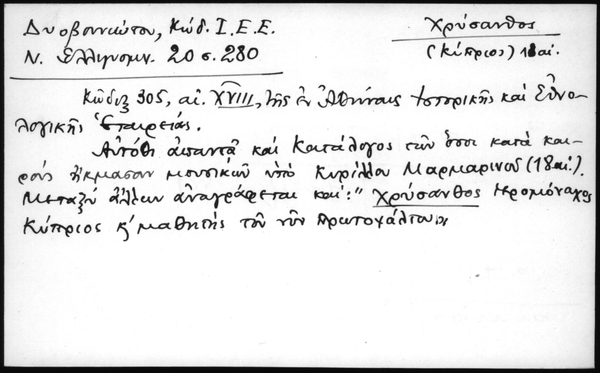 Δυοβουνιώτου, Κώδ. Ι.Ε.Ε.
Χρύσανθος
Ν. Ελληνομν. 20 σ. 280
(Κύπριος) 18 αἰ.
Κῶδιξ 305, αἰ. XVIII, τῆς ἐν Ἀθήναις Ἱστορικῆς καὶ Ἐθνο-
λογικῆς Ἑταιρείας.
Αὐτόθι ἀπαντᾶ καὶ Κατάλογος τῶν ὅσοι κατὰ και-
ροὺς ἤκμασαν μουσικῶν ὑπὸ Κυρίλλου Μαρμαρινοῦ (18 αἰ.).
Μεταξὺ ἄλλων ἀναγράφεται καὶ: "Χρύσανθος ἱερομόναχος
Κύπριος κ' μαθητὴς τοῦ νῦν Πρωτοψάλτου"